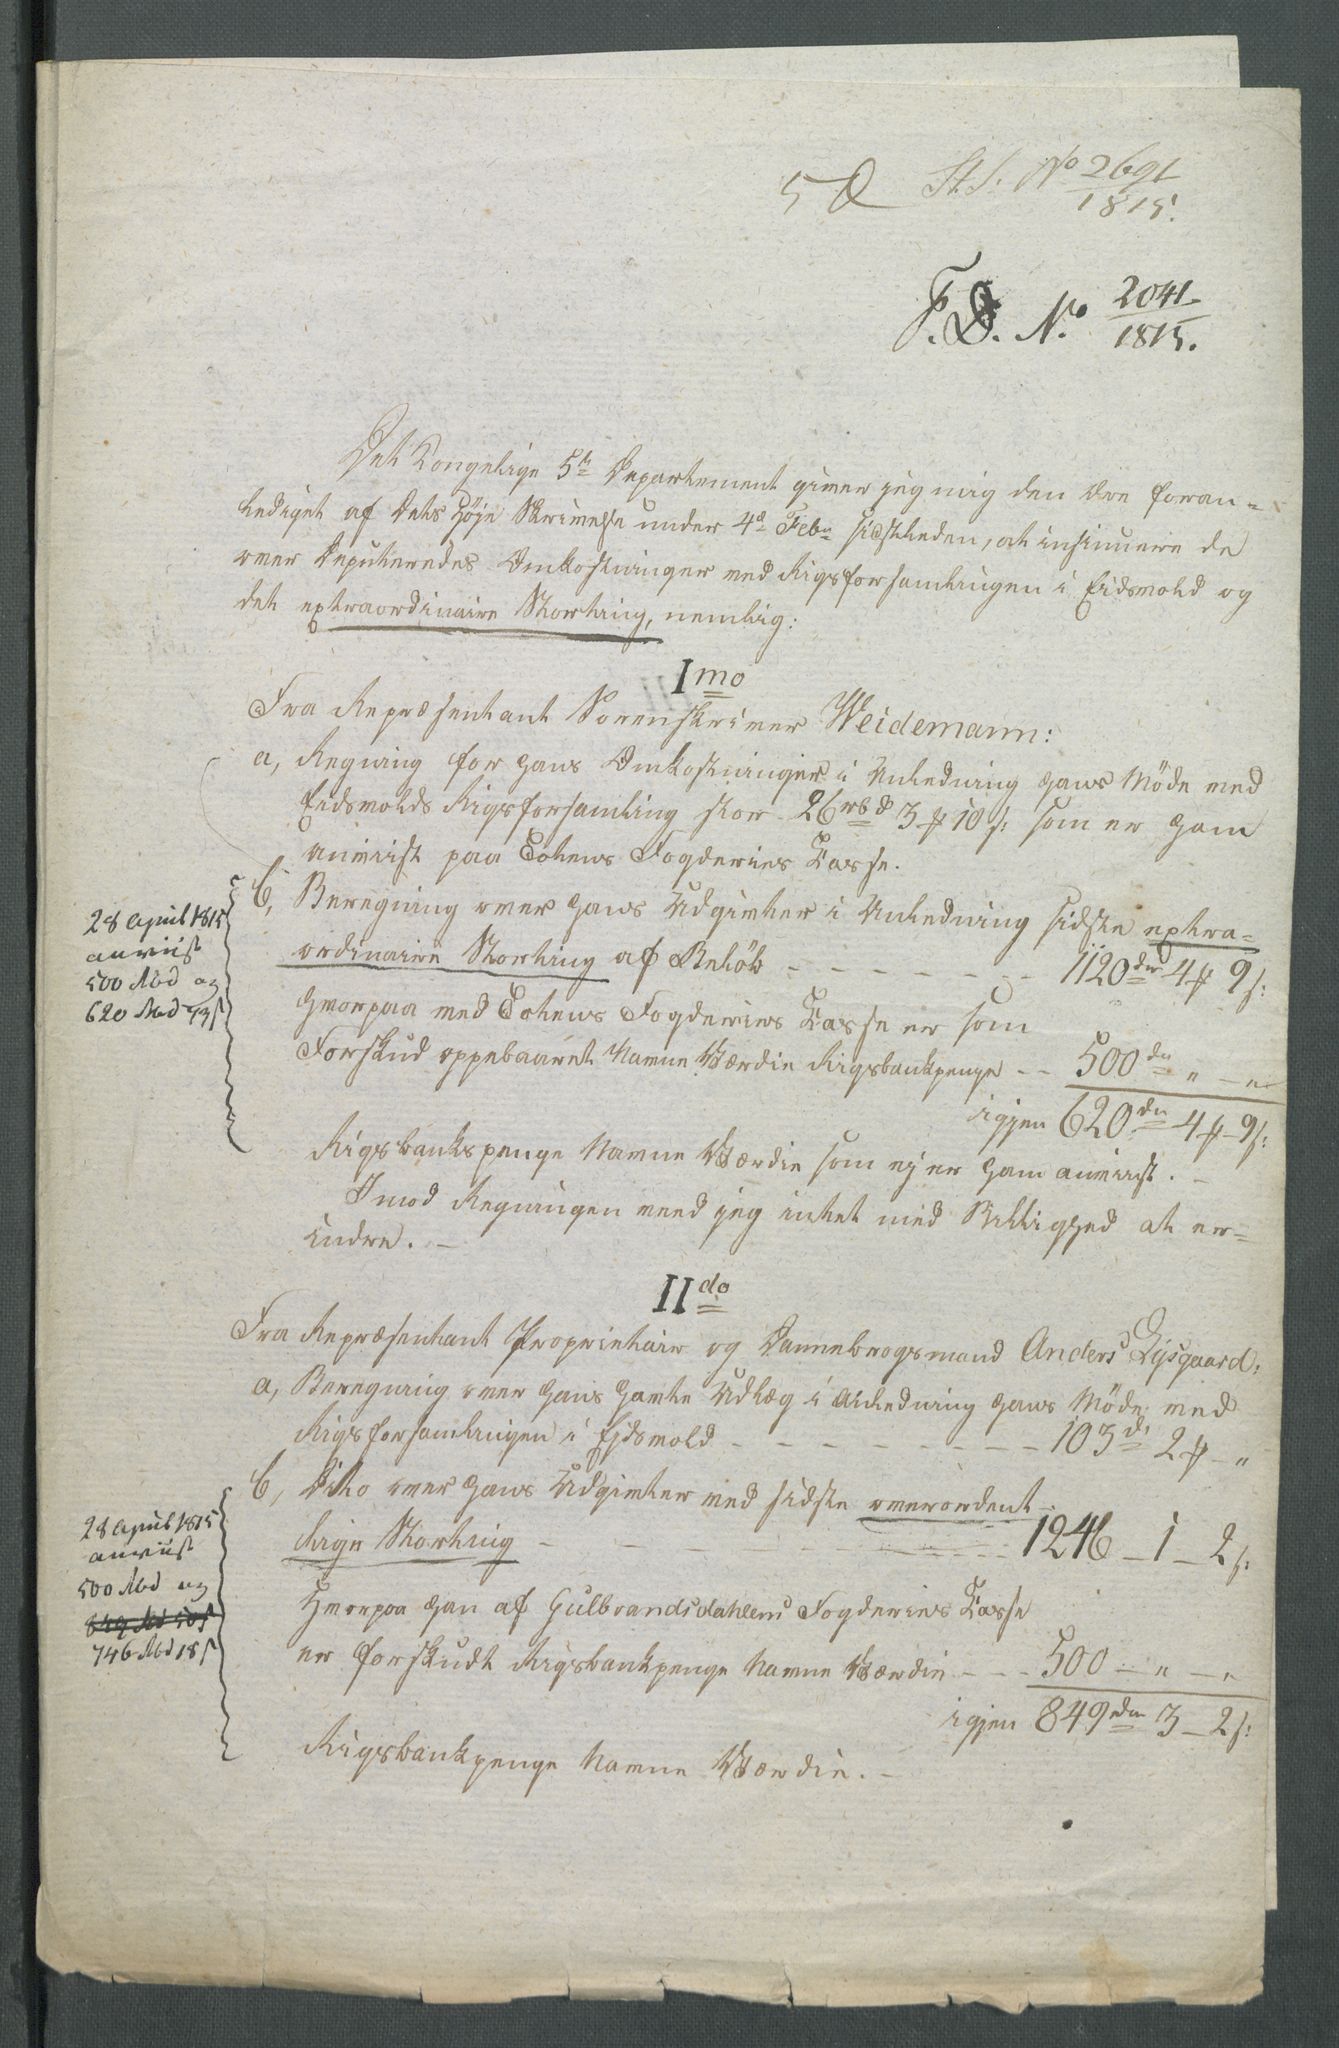 5 D St. S: No 2691
1815.
F. D. No. 2041
1815.
Det Kongelige 5te Departement giver jeg mig den Ære foran-
lediget af Dets Höje Skrivelse under 4de Febr sidstleden, at insinuere de
over Deputeredes Omkostninger ved Rigsforsamlingen i Eidsvold og
det extraordinaire Storting, nemlig:
Imo
Fra Repræsentant Sorenskriver Weidemann:
a, Regning for hans Omkostninger i Anledning hans Möde ved
Eidsvolds Rigsforsamling stor 26 rbd 3 # 10 s: som er ham
anviist paa Totens Fogderies Casse.
b, Beregning over hans Udgivter i Anledning sidste extra-
ordinaire Storting af Belöb - - - - - - - 1120 dr 4 # 9 s:
hvorpaa ved Totens Fogderies Casse er som
Forskud oppebaaret Navne Værdie Rigsbankpenge - - 500 dr " - "
igjen 620 dr 4 # - 9 s:
Rigsbankspenge Navne Værdie som ej er ham anviist. -
Imod Regningen veed jeg intet med Billighed at er-
indre. -
28 April 1815
anviist
500 Rbd og
620 Rbd
IIdo
Fra Repræsentant Proprietair og Dannebrogsmand Anders Lysgaard:
a, Beregning over hans havte Udlæg i Anledning hans Möde ved
Rigsforsamlingen i Ejdsvold - - - - - - - - - 103 dr 2 # - "
b, Dito over hans Udgivter ved sidste overordent-
lige Storting - - - - - - 1246 - 1 - 2 s:
Hvorpaa han af Gulbrandsdahlens Fogderies Casse
er forskudt Rigsbankpenge Navne Værdie - - - 500 - " - "
igjen 849 dr 3 - 2 s:
Rigsbankpenge Navne Værdie. -
28 April 1815
anviist
500 Rbd og
746 Rbd 18 s